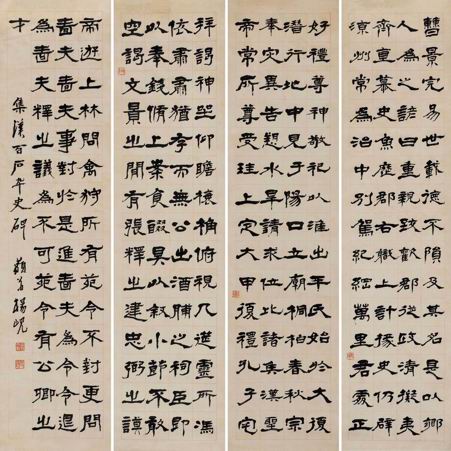 曹景完易世載德不隕及其名是以鄉
人為之諺曰重親致歡上郡從政清擬夷
齊直慕史魚歷郡右職上計掾史仍辟
涼州常為治中別駕紀綱萬里君處正
好禮尊神于祀以淮出平氏始於大復
潛行地中見于陽口立廟桐柏春秋宗
奉災異告愬水旱請求位比諸侯漢聖
帝常所尊受珪上帝定大甲復禮孔子宅
拜謁神坐仰瞻榱桷俯視几筵靈所馮
依肅肅猶存而無公出酒脯之祠臣即
以奉錢脩上案食醊具以敘小節不敢
空謁文景之間有張釋之建忠弼之謨
帝遊上林問禽狩所有苑令不對更問
嗇夫嗇夫事對於是進嗇夫為令令退
為嗇夫釋之議為不可苑令有公卿之
才
集漢百石卒史碑 藐翁楊峴